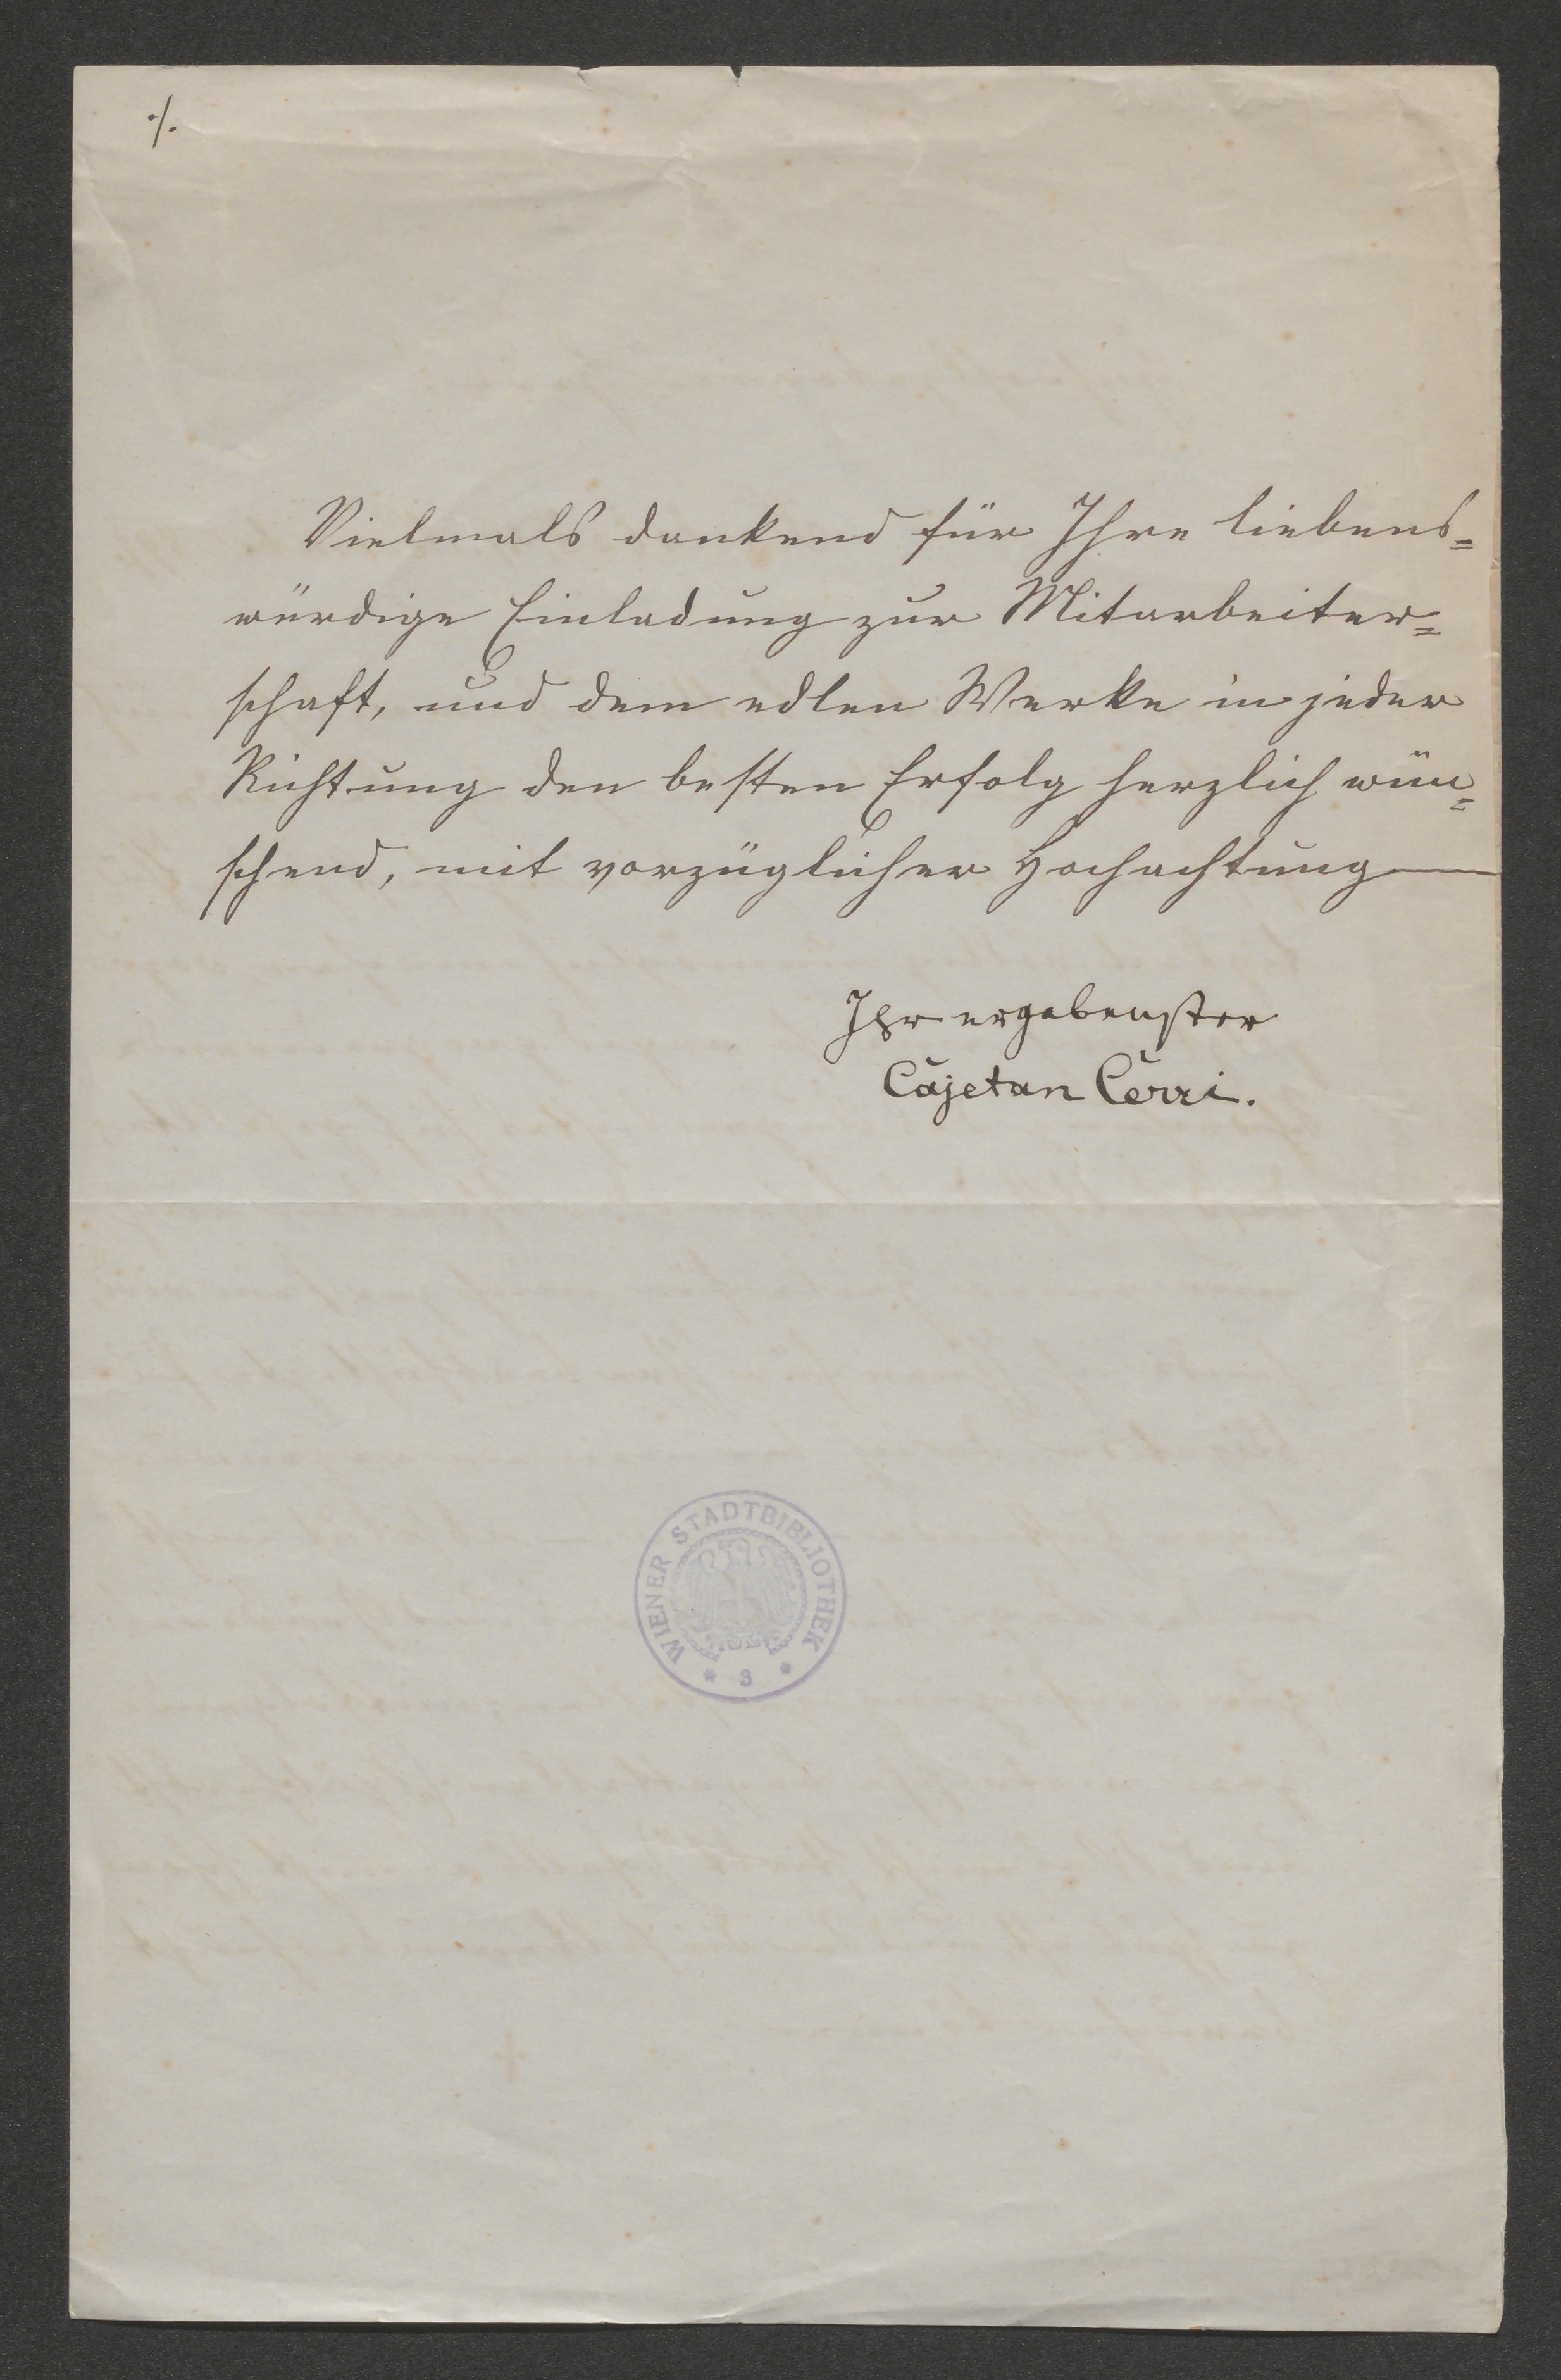 ./.
Vielmals dankend für Ihre liebens=
würdige Einladung zur Mitarbeiter=
schaft, und dem edlen Werke in jeder
Richtung den besten Erfolg herzlich wün=
schend, mit vorzüglicher Hochachtung
Ihr ergebenster
Cajetan Cerri.
WIENER STADTBIBLIOTHEK
* 3 *